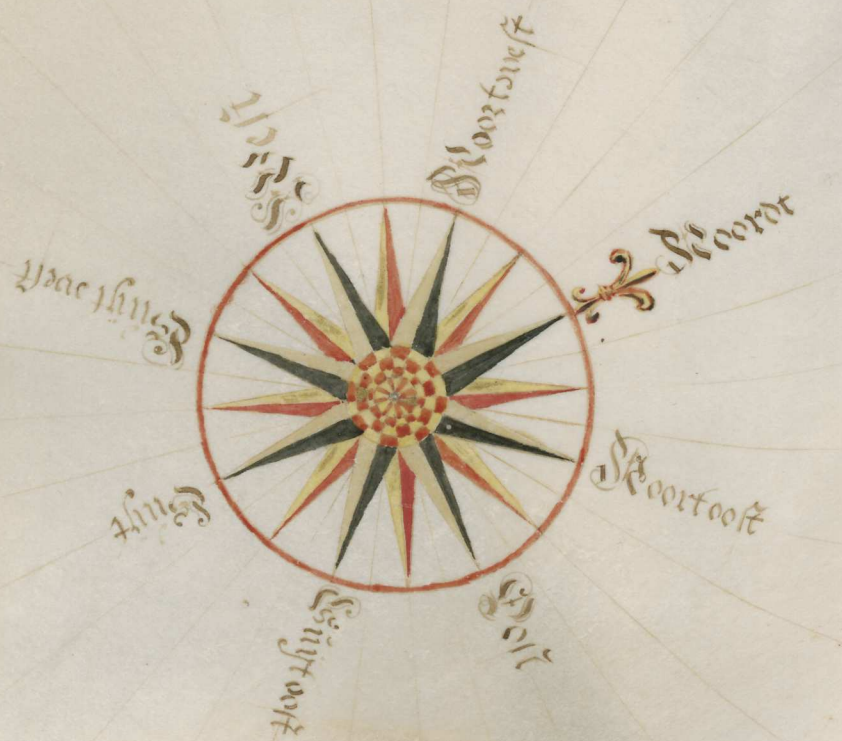 Noordt
Noortoost
Oost
Zuijtoost
Zuijt
Zuijt west
West
Noortwest